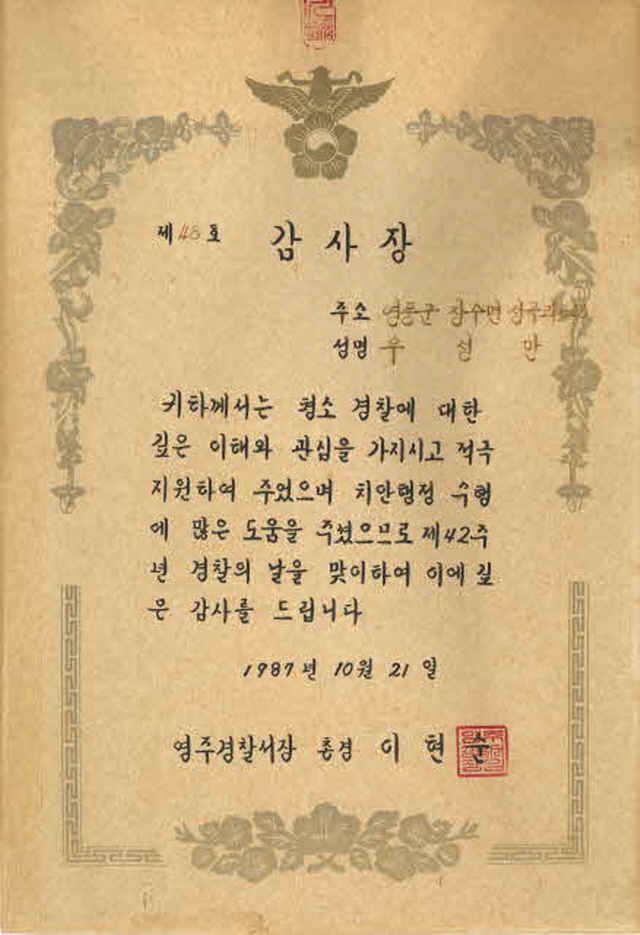 제 48 호 감사장
주소 영풍군 장수면 성곡리
성명 우 성 만
귀하께서는 평소 경찰에 대한
깊은 이해와 관심을 가지시고 적극
지원하여 주었으며 치안행정 수행
에 많은 도움을 주셨으므로 제42주
년 경찰의 날을 맞이하여 이에 깊
은 감사를 드립니다
1987년 10월 21일
영주경찰서장 총경 이현순